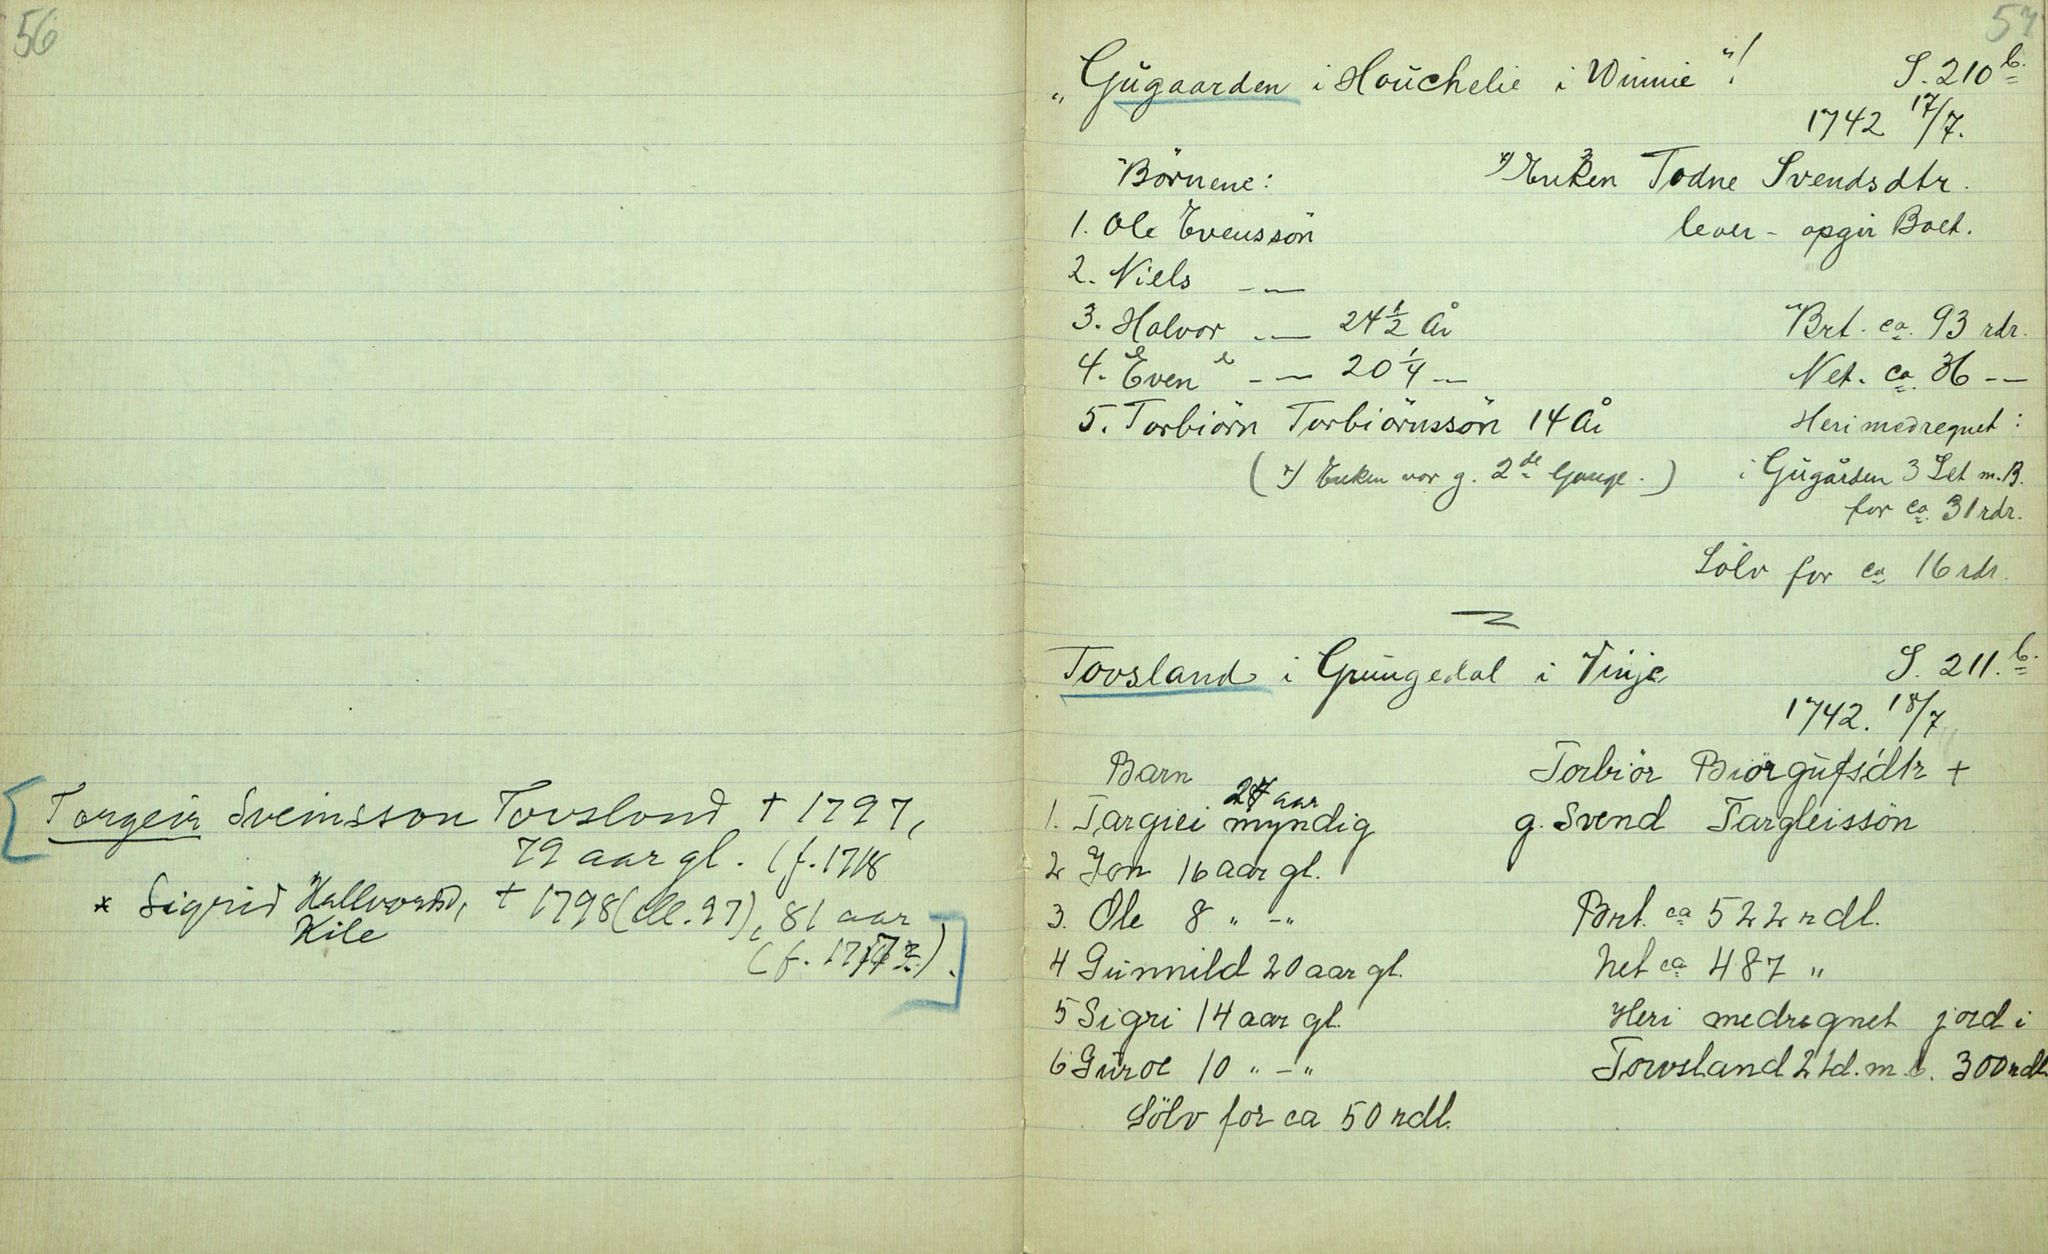 56
Torgeir Sveinsson Tovsland † 1797,
79 aar gl. (f. 1718
* Sigrid Hallvorsd, † 1798 (ell. 97), 81 aar
Kile
(f. 1717).
57
"Gŭgaarden i Hoŭchelie i Winnie"! S. 210 b.
1742 17/7.
Børnene: x) Enken Todne Svendsdtr.
1. Ole Evenssön lever - opgir Boet.
2. Niels —
3. Halvor — 24 1/2 År Brt. ca. 93 rdr.
4. Even — 20 1/4 — Net. ca. 36 —
5. Torbiörn Torbiörnssön 14 År Heri medregnet:
(x) Enken var g. 2de Gange.) i Gŭgården 3 Set m.B.
for ca. 31 rdr.
Sölv for ca 16 rdr.
Tovsland i Grŭngedal i Vinje S. 211. b.
1742. 18/7
Barn Torbiör Biörgŭfsdtr +
27 aar
1. Targiei myndig g. Svend Targleissön
2 Jon 16 aar gl.
3. Ole 8 " -" Brt. ca 522 rdl.
4 Gŭnnild 20 aar gl. Net ca 487 "
5 Sigri 14 aar gl. Heri medregnet jord i
6 Gŭroe 10 " -" Towsland 2 Ld. m b. 300 rdl
Sölv for ca 50 rdl.